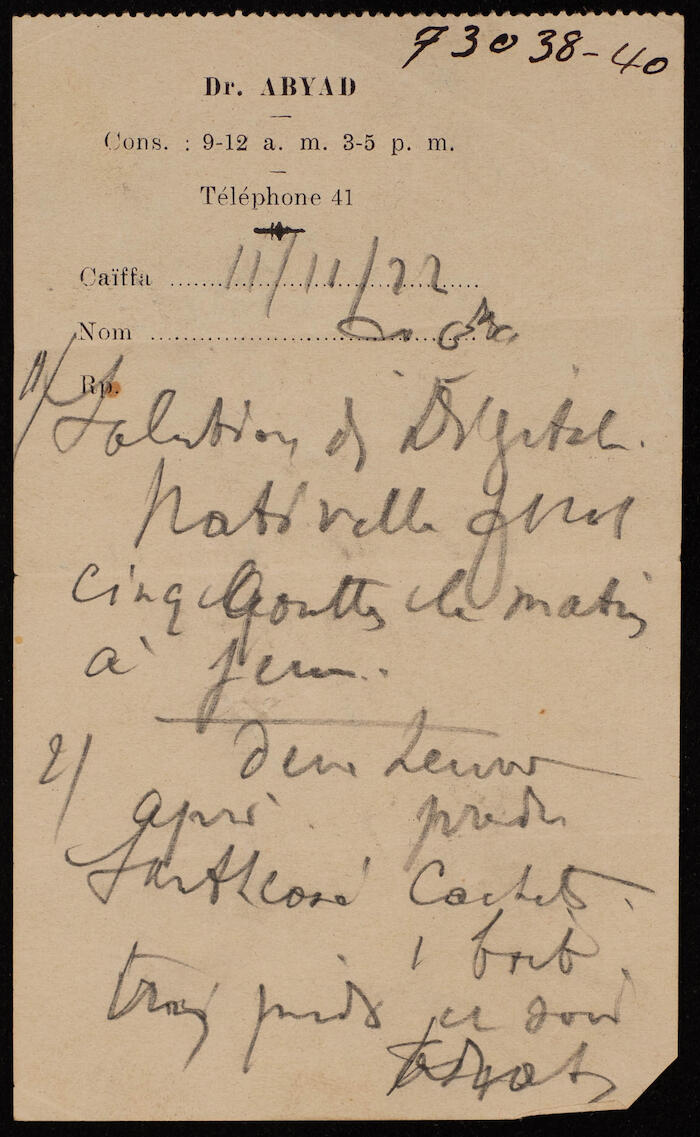 73038-40
Dr. ABYAD
Cons. : 9-12 a. m. 3-5 p. m.
Téléphone 41
Caïffa 11/11/22
Nom
Rp.
1/ Solution de Digital.
Nativelle
cinq Gouttes le matin
à jeun.
2/ deux heures
après prendre
Santheose Cachets.
1 boit.
trois